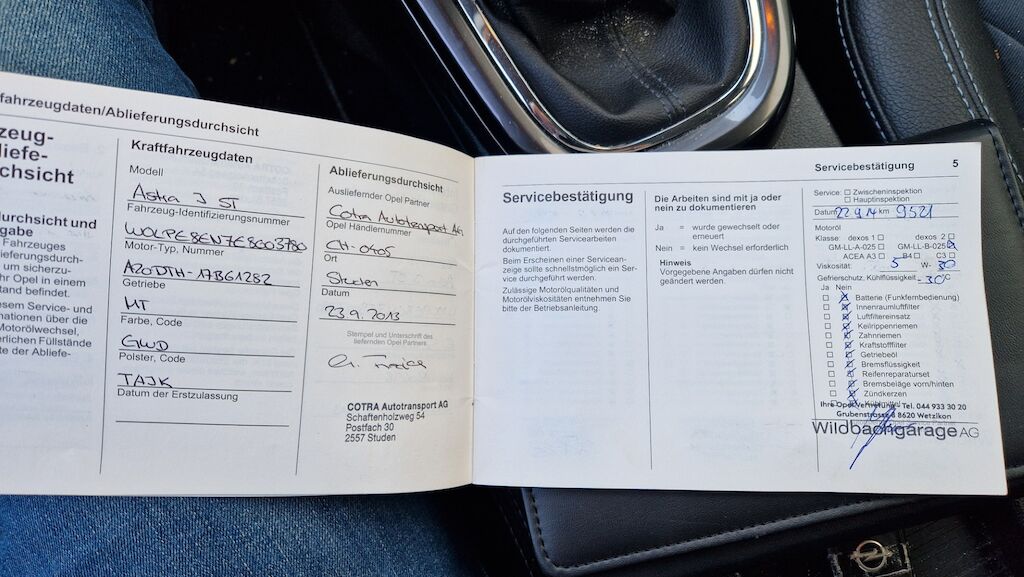 fahrzeugdaten/Ablieferungsdurchsicht
zeug-
liefe-
chsicht
durchsicht und
gabe
Fahrzeuges
ieferungsdurch-
um sicherzu-
hr Opel in einem
stand befindet.
esem Service- und
nationen über die
Motorölwechsel,
erlichen Füllstände
te der Abliefe-
Kraftfahrzeugdaten
Modell
Astra J ST
Fahrzeug-Identifizierungsnummer
W0LPE8EN7E8003780
Motor-Typ, Nummer
A20DTH-17B61282
Getriebe
MT
Farbe, Code
GWD
Polster, Code
TAJK
Datum der Erstzulassung
Ablieferungsdurchsicht
Ausliefernder Opel Partner
Cotra Autotransport AG
Opel Händlernummer
CH-0405
Ort
Studen
Datum
23.9.2013
Stempel und Unterschrift des
liefernden Opel Partners
COTRA Autotransport AG
Schaftenholzweg 54
Postfach 30
2557 Studen
Servicebestätigung 5
Servicebestätigung
Auf den folgenden Seiten werden die
durchgeführten Servicearbeiten
dokumentiert.
Beim Erscheinen einer Servicean-
zeige sollte schnellstmöglich ein Ser-
vice durchgeführt werden.
Zulässige Motorölqualitäten und
Motorölviskositäten entnehmen Sie
bitte der Betriebsanleitung.
Die Arbeiten sind mit ja oder
nein zu dokumentieren
Ja = wurde gewechselt oder
erneuert
Nein = kein Wechsel erforderlich
Hinweis
Vorgegebene Angaben dürfen nicht
geändert werden.
Service: Zwischeninspektion
Hauptinspektion
Datum 22.9.14 km 9521
Motoröl
Klasse: dexos 1 dexos 2
GM-LL-A-025 GM-LL-B-025
ACEA A3 B4 C3
Viskosität: 5 W- 30
Gefrierschutz, Kühlflüssigkeit -30°C
Ja Nein
Batterie (Funkfernbedienung)
Innenraumluftfilter
Luftfiltereinsatz
Keilrippenriemen
Zahnriemen
Kraftstofffilter
Getriebeöl
Bremsflüssigkeit
Reifenreparaturset
Bremsbeläge vorn/hinten
Zündkerzen
Ihre Opel-Vertretung Tel. 044 933 30 20
Grubenstrasse 8 8620 Wetzikon
Wildbachgarage AG